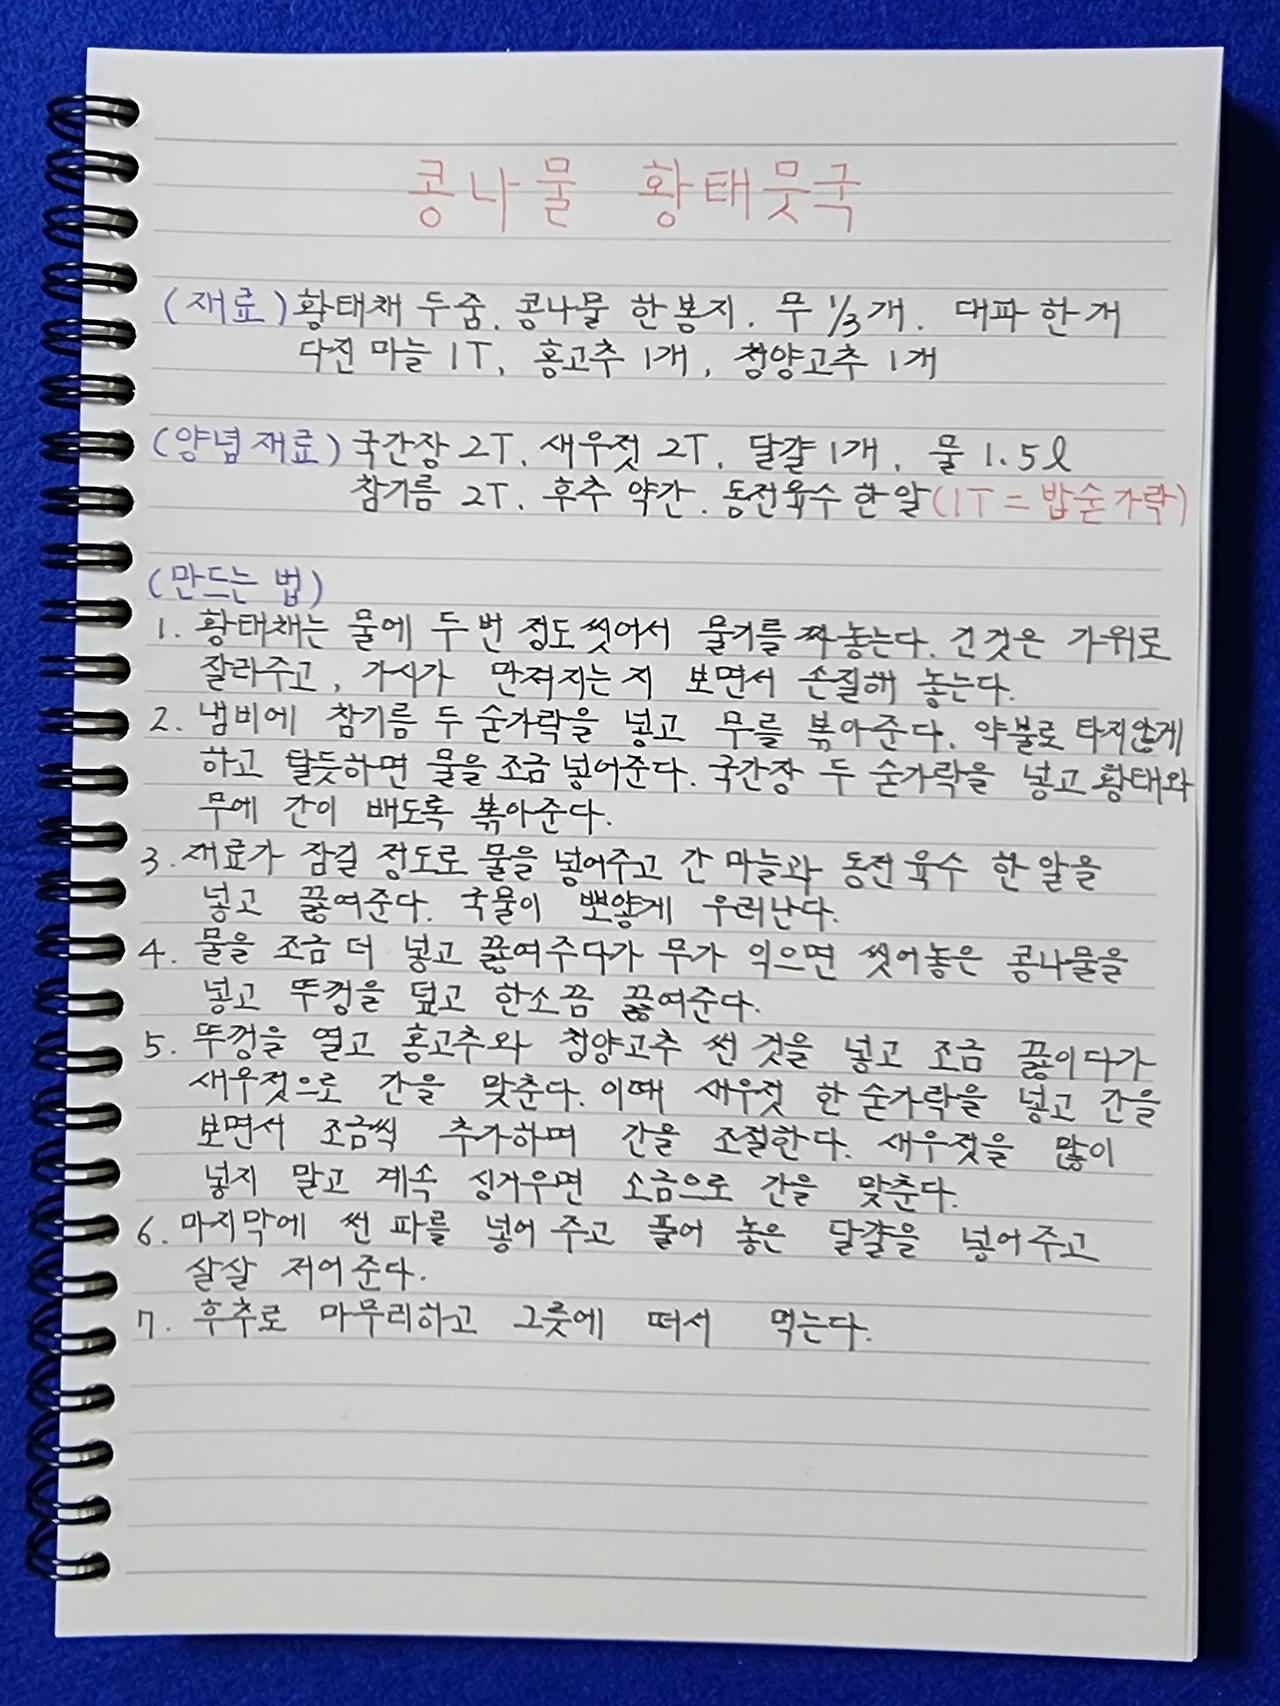 콩나물 황태뭇국
(재료) 황태채 두줌. 콩나물 한봉지. 무 1/3개. 대파 한개
다진 마늘 1T, 홍고추 1개, 청양고추 1개
(양념 재료) 국간장 2T. 새우젓 2T. 달걀 1개. 물 1.5ℓ
참기름 2T. 후추 약간. 동전육수 한알 (1T = 밥숟가락)
(만드는 법)
1. 황태채는 물에 두번 정도 씻어서 물기를 짜놓는다. 긴것은 가위로
잘라주고, 가시가 만져지는지 보면서 손질해 놓는다.
2. 냄비에 참기름 두 숟가락을 넣고 무를 볶아준다. 약불로 타지않게
하고 탈듯하면 물을 조금 넣어준다. 국간장 두 숟가락을 넣고 황태와
무에 간이 배도록 볶아준다.
3. 재료가 잠길 정도로 물을 넣어주고 간 마늘과 동전 육수 한 알을
넣고 끓여준다. 국물이 뽀얗게 우러난다.
4. 물을 조금 더 넣고 끓여주다가 무가 익으면 씻어놓은 콩나물을
넣고 뚜껑을 덮고 한소끔 끓여준다.
5. 뚜껑을 열고 홍고추와 청양고추 썬 것을 넣고 조금 끓이다가
새우젓으로 간을 맞춘다. 이때 새우젓 한 숟가락을 넣고 간을
보면서 조금씩 추가하며 간을 조절한다. 새우젓을 많이
넣지 말고 계속 싱거우면 소금으로 간을 맞춘다.
6. 마지막에 썬 파를 넣어 주고 풀어 놓은 달걀을 넣어주고
살살 저어준다.
7. 후추로 마무리하고 그릇에 떠서 먹는다.